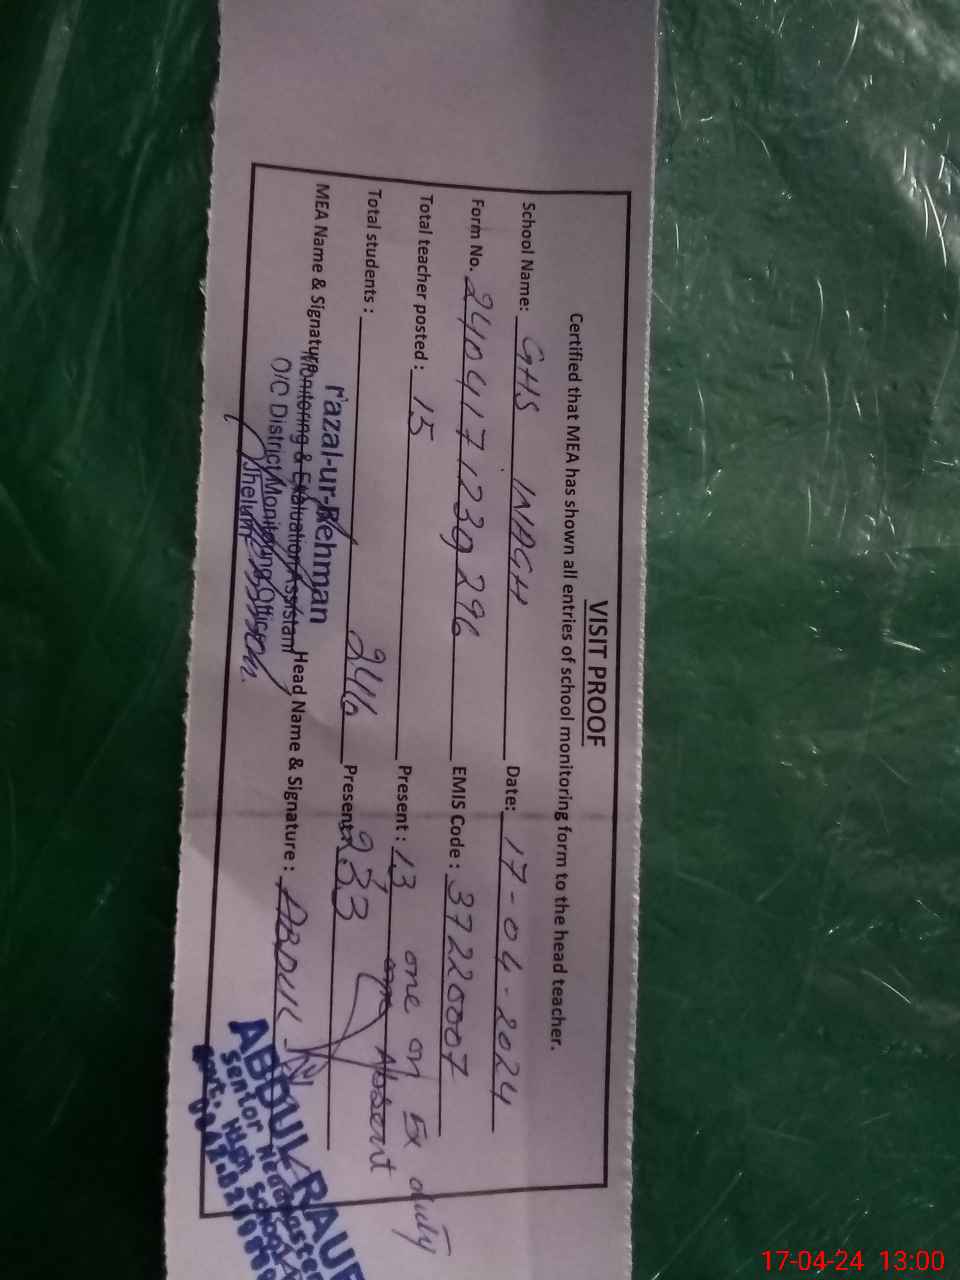 VISIT PROOF
Certified that MEA has shown all entries of school monitoring form to the head teacher.
School Name: GHS WAGH Date: 17-04-2024
Form No. 2404171239296 EMIS Code : 37220007
Total teacher posted : 15 Present : 13 one on Ex duty
one Absent
Total students : 246 Present: 233
MEA Name & Signature Head Name & Signature : ABDUL
Fazal-ur-Rehman
Monitoring & Evaluation Assistant
O/C District Monitoring Officer
Jhelum
ABDUL RAUF
Senior Headmaster
Govt. High School
17-04-24 13:00